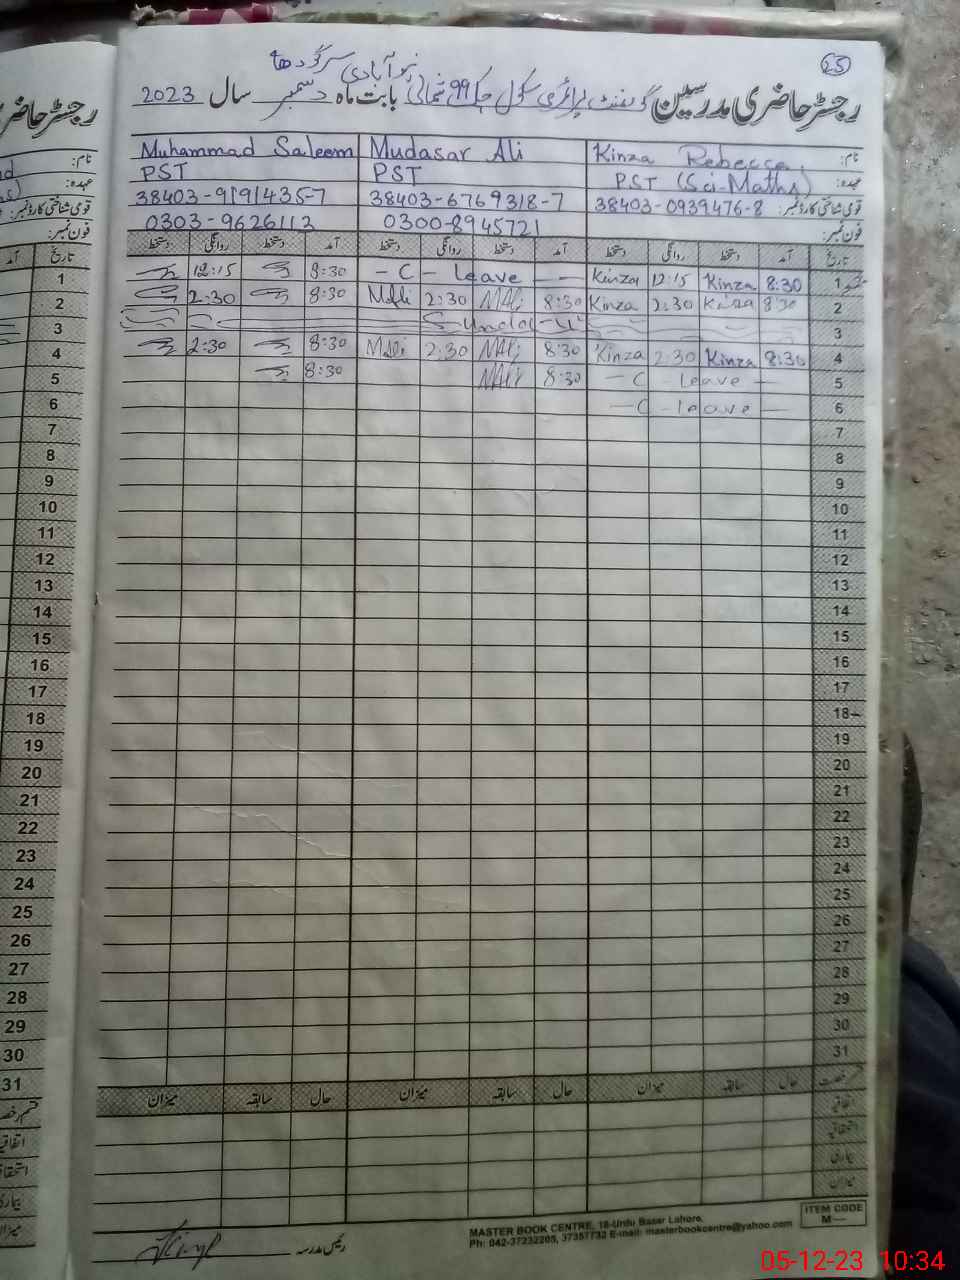 25
نیو آبادی سرگودھا
رجسٹر حاضری مدرسین گورنمنٹ پرائمری سکول چک 99 شمالی بابت ماہ دسمبر سال 2023
نام: Kinza Rebecca Mudasar Ali Muhammad Saleem
عہدہ: PST (Sci-Maths) PST PST
قومی شناختی کارڈ نمبر: 38403-0939476-8 38403-6769318-7 38403-9191435-7
فون نمبر: 0300-8945721 0303-9626112
تاریخ آمد دستخط روانگی دستخط آمد دستخط روانگی دستخط آمد دستخط روانگی دستخط
1 8:30 Kinza 12:15 Kinza - C - Leave - 8:30 12:15
2 8:30 Kinza 2:30 Kinza 8:30 MAli 2:30 MAli 8:30 2:30
3 Sunday
4 8:30 Kinza 2:30 Kinza 8:30 MAli 2:30 MAli 8:30 2:30
5 - C - Leave - 8:30 MAli 8:30
6 - C - leave -
7
8
9
10
11
12
13
14
15
16
17
18
19
20
21
22
23
24
25
26
27
28
29
30
31
رخصت حال سابقہ میزان حال سابقہ میزان حال سابقہ میزان
اتفاقیہ
استحقاقیہ
بیماری
میزان
رئیس مدرسہ
MASTER BOOK CENTRE, 18-Urdu Bazar Lahore.
Ph: 042-37232205, 37357732 E-mail: masterbookcentre@yahoo.com
ITEM CODE
M—
05-12-23 10:34